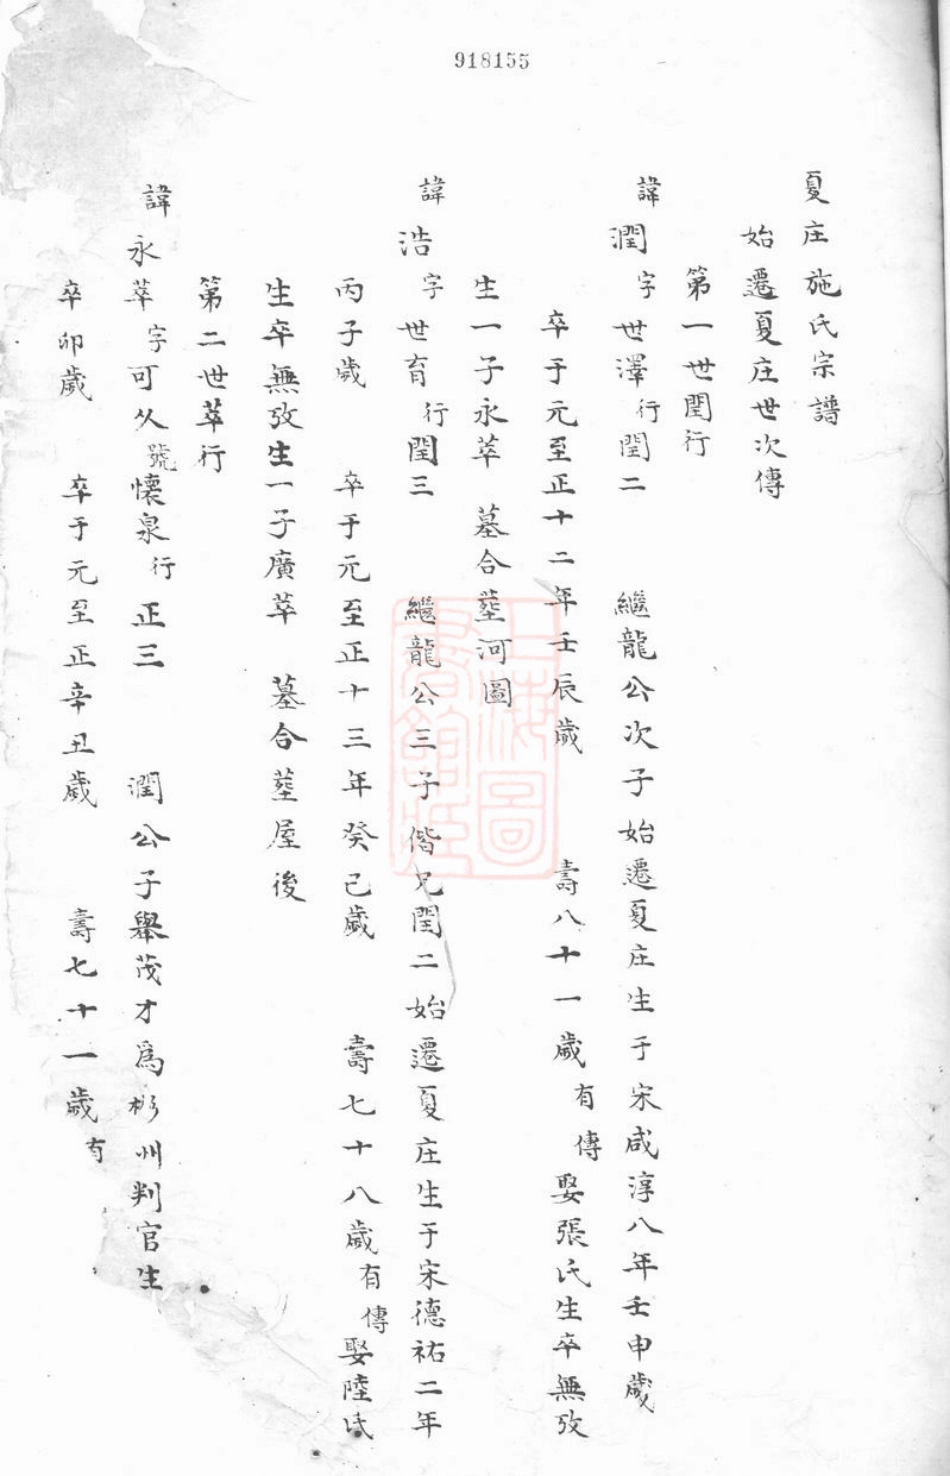 918155
夏庄施氏宗譜
始遷夏庄世次傳
第一世閏行
諱潤字世澤行閏二 繼龍公次子始遷夏庄生于宋咸淳八年壬申歲
卒于元至正十二年壬辰歲 壽八十一歲有傳娶張氏生卒無攷
生一子永萃 墓合塟河圖
諱浩字世育行閏三 繼龍公三子偕兄閏二始遷夏庄生于宋德祐二年
丙子歲 卒于元至正十三年癸己歲 壽七十八歲有傳娶陸氏
生卒無攷生一子廣萃 墓合塟屋後
第二世萃行
諱永萃字可久號懷泉行正三 潤公子舉茂才爲彬州判官生
卒卯歲 卒于元至正辛丑歲 壽七十一歲有
上海圖書館藏